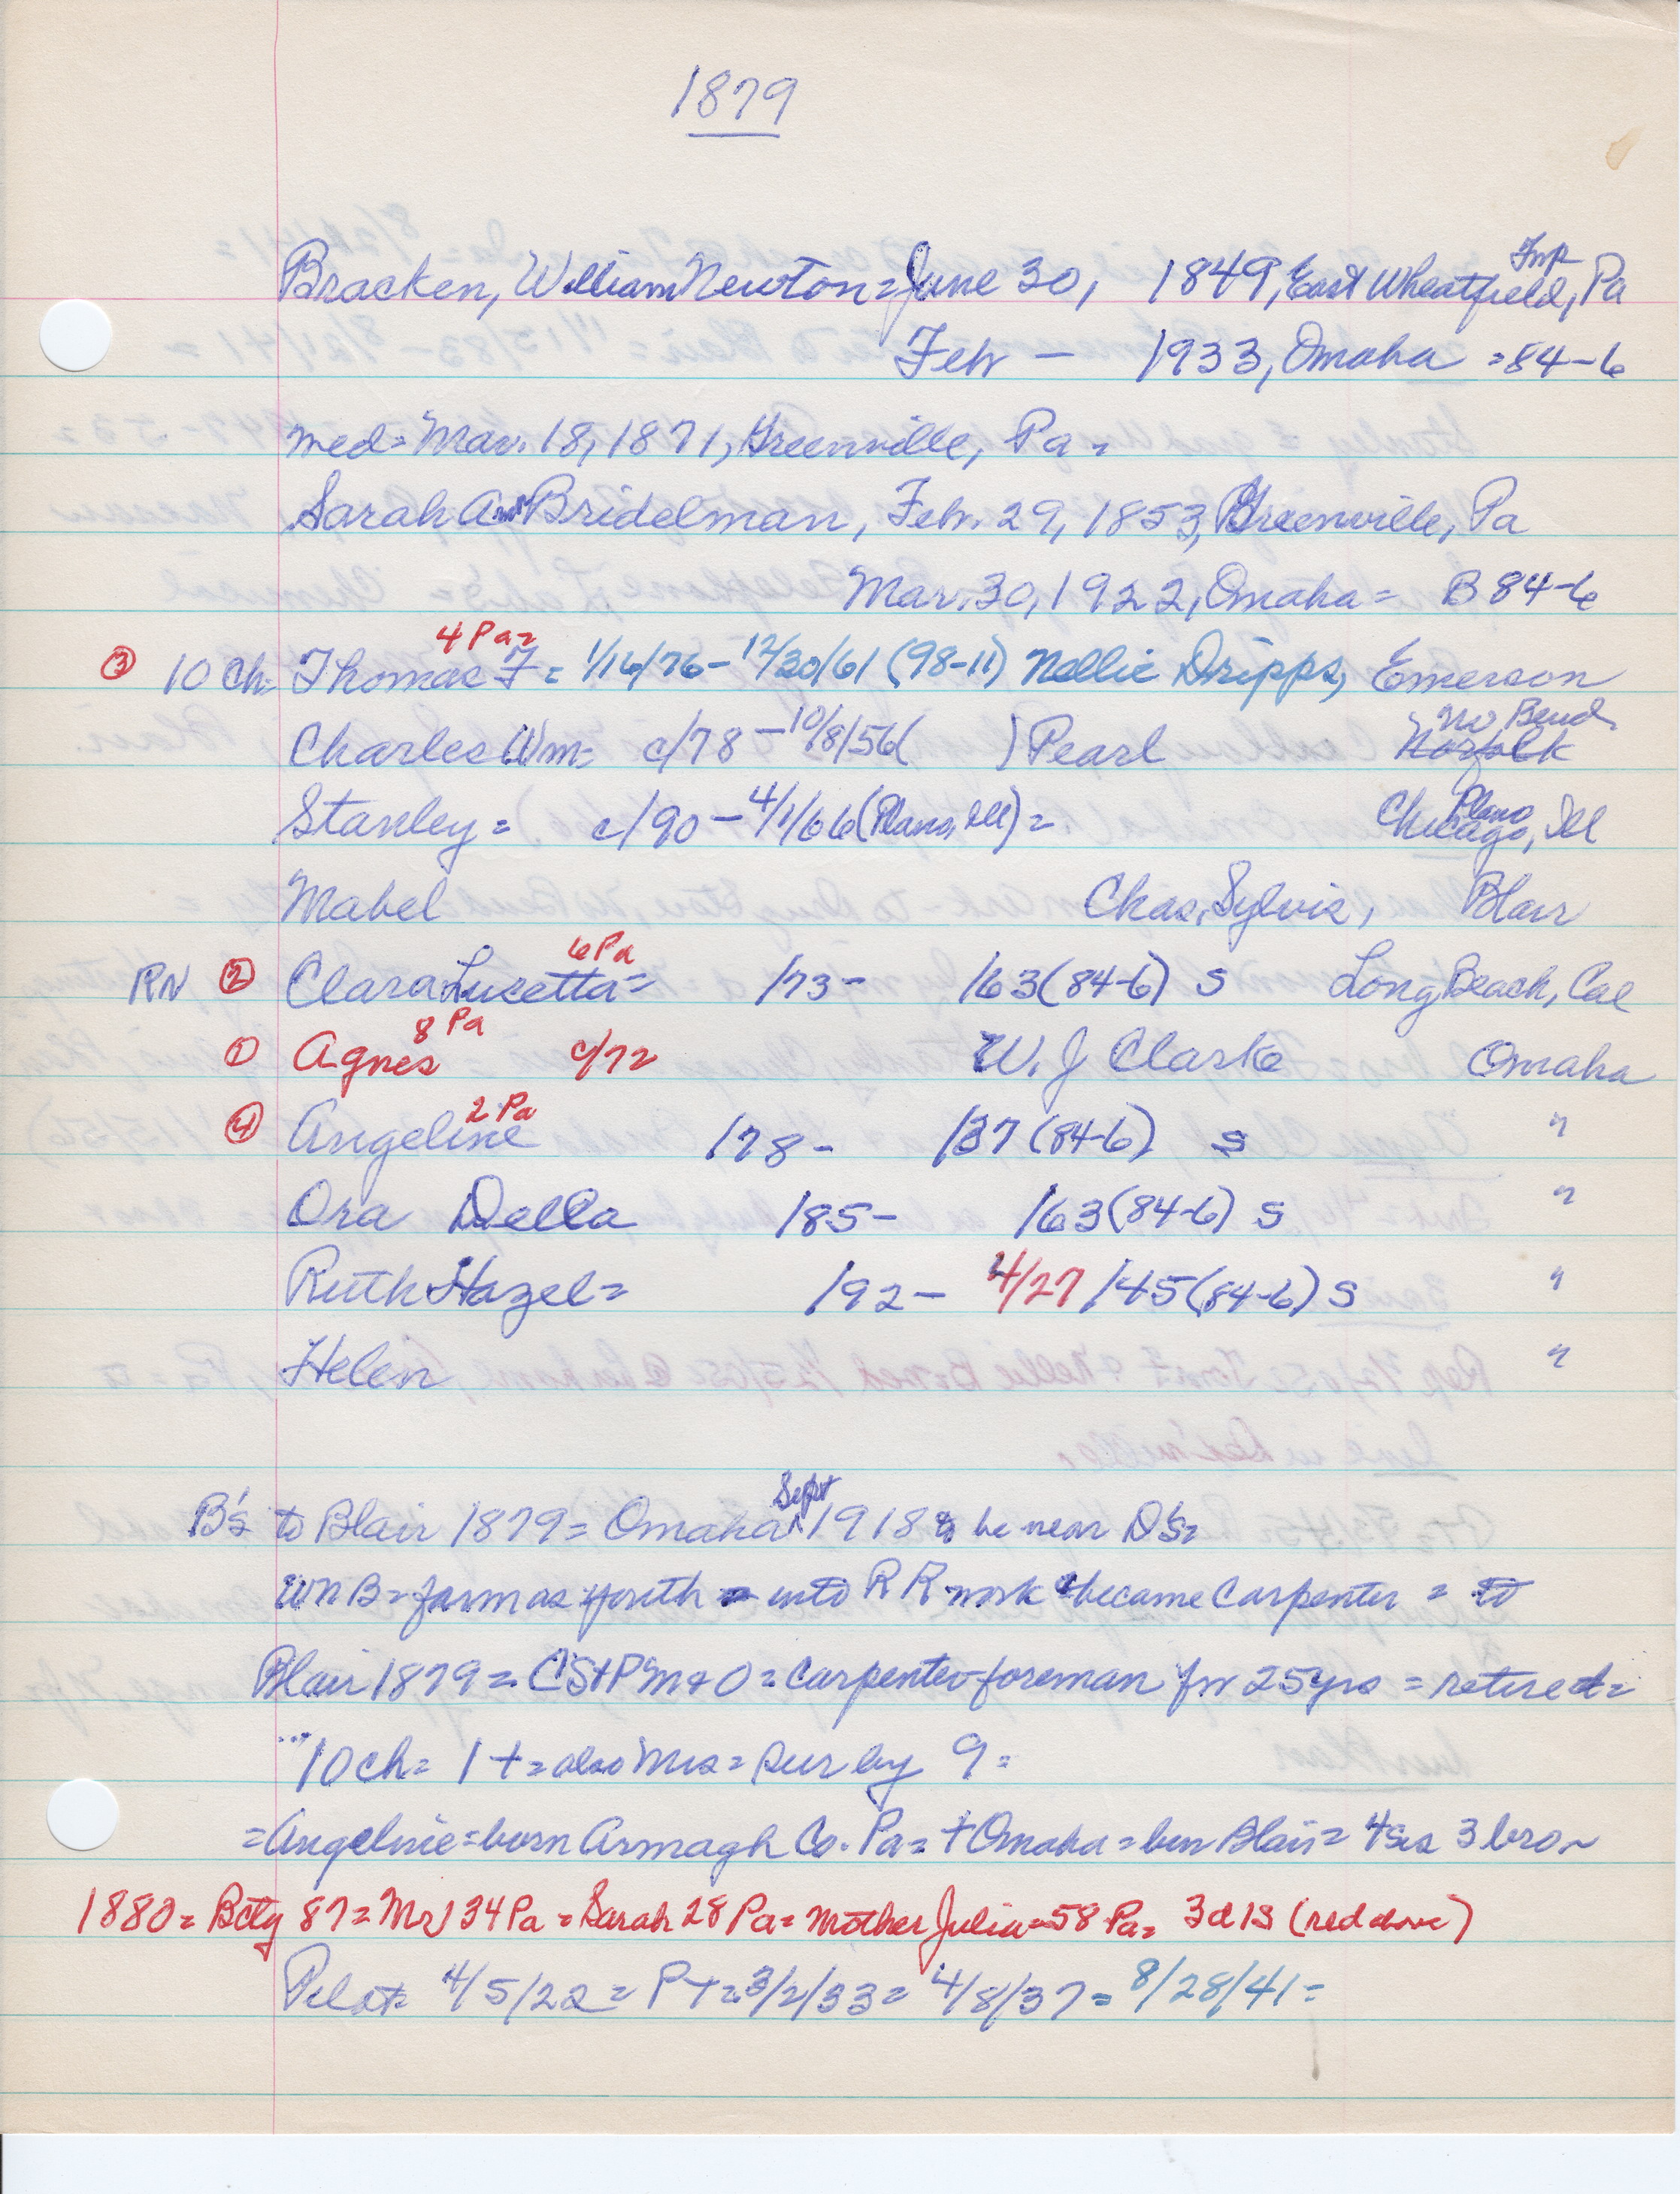 1879
Bracken, William Newton = June 30, 1849, East Wheatfield, Twp Pa
Feb — 1933, Omaha = 84-6
med = Mar. 18, 1871, Greenville, Pa =
Sarah Ann Bridelman, Feb. 29, 1853, Greenville, Pa
Mar. 30, 1922, Omaha = B 84-6
4 Pa =
③ 10 Ch. Thomas F = 1/16/76 - 12/30/61 (98-11) Nellie Dripps, Emerson
Charles Wm = c/78 - 10/8/56 ( ) Pearl Norfolk No Bend
Stanley = c/90 - 4/1/66 (Plano, Ill) = Chicago, Plano Ill
Mabel Chas. Sylvis, Blair
6 Pa
RN ② Clara Lucetta = /73 - /63 (84-6) S Long Beach, Cal
8 Pa
① Agnes c/72 W. J Clarke Omaha
2 Pa
④ Angeline /78 - /37 (84-6) S "
Ora Della /85 - /63 (84-6) S "
Ruth Hazel = /92 - 4/27/45 (84-6) S "
Helen "
B's to Blair 1879 = Omaha Sept 1918 to be near D's =
WNB = farm as youth = into RR work = became carpenter = to
Blair 1879 = CStPM+O = carpenter foreman for 25 yrs = retired =
10 ch = 1 + = also Mrs = sur by 9 =
= Angeline = born Armagh Co. Pa = + Omaha = bur Blair = 4 sis 3 bro ~
1880 = Bctg 87 = Mr J 34 Pa = Sarah 28 Pa = Mother Julia = 58 Pa = 3d 1s (red above)
Pilot = 4/5/22 = PT = 3/2/33 = 4/8/37 = 8/28/41 =